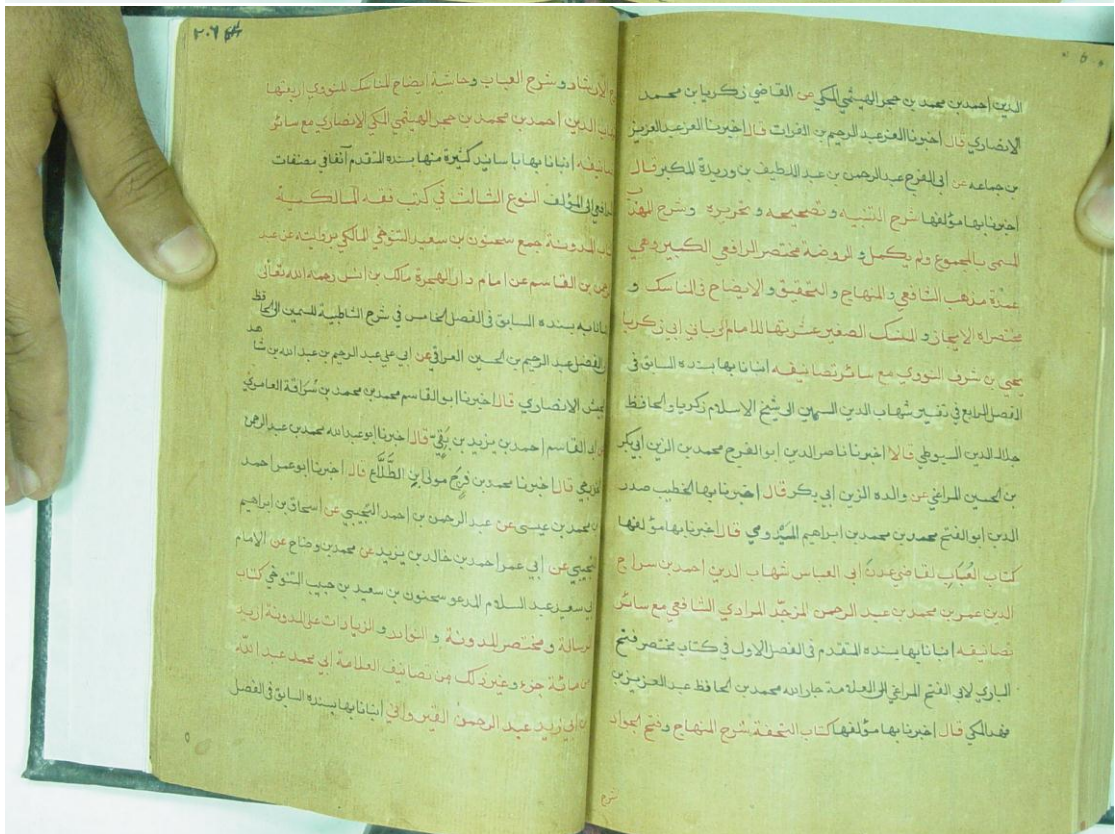 الدين احمد بن محمد بن حجر الهيثمي المكي عن القاضي زكريا بن محمد
الانصاري قال اخبرنا العز عبد الرحيم بن الفرات قال اخبرنا العز عبد العزيز
بن جماعه عن أبى الفرج عبد الرحمن بن عبد اللطيف بن وريدة المكبر قال
اخبرنا بها مؤلفها شرح التنبيه وتصحيحه وتحريره وشرح المهذب
المسمى بالمجموع ولم يكمل والروضة مختصر الرافعي الكبير وهي
عمدة مذهب الشافعي والمنهاج والتحقيق والايضاح في المناسك و
مختصراه الايجاز و المنسك الصغير عشرتها للامام الرباني ابي زكريا
يحيى بن شرف النووي مع سائر تصانيفه انبانا بها بسنده السابق في
الفصل الرابع في تفسير شهاب الدين السمين الى شيخ الاسلام زكريا والحافظ
جلال الدين السيوطي قالا اخبرنا ناصر الدين ابو الفرج محمد بن الزين أبي بكر
بن الحسين المراغي عن والده الزين ابي بكر قال اخبرنا بها الخطيب صدر
الدين ابو الفتح محمد بن محمد بن ابراهيم الميدومي قال اخبرنا بها مؤلفها
كتاب العباب لقاضي عدن أبى العباس شهاب الدين احمد بن سراج
الدين عمر بن محمد بن عبد الرحمن المزجد المرادي الشافعي مع سائر
تصانيفه انبانا بها بسنده المتقدم في الفصل الاول في كتاب مختصر فتح
الباري لابى الفتح المراغي الى العلامة جار الله محمد بن الحافظ عبد العزيز بن
فهد المكي قال اخبرنا بها مؤلفها كتاب التحفة شرح المنهاج وفتح الجواد
شرح
٢٠٦
الارشاد وشرح العباب وحاشية ايضاح المناسك للنووي اربعتها
الدين احمد بن محمد بن حجر الهيثمي المكي الانصاري مع سائر
تصانيفه انبانا بها باسانيد كثيرة منها بسنده المتقدم آنفا في مصنفات
الرافعي الى المؤلف النوع الثالث في كتب فقه المالكية
المدونة جمع سحنون بن سعيد التنوخي المالكي من روايته عن عبد
الرحمن بن القاسم عن امام دار الهجرة مالك بن انس رحمه الله تعالى
انبانا به بسنده السابق في الفصل الخامس في شرح الشاطبية للسمين الى الحافظ
ابى الفضل عبد الرحيم بن الحسين العراقي عن ابي علي عبد الرحيم بن عبد الله بن شاهد
الجيش الانصاري قال اخبرنا ابو القاسم محمد بن محمد بن سراقة العامري
القاسم احمد بن يزيد بن بقي قال اخبرنا ابو عبد الله محمد بن عبد الرحمن
الخزرجي قال اخبرنا محمد بن فرج مولى بن الطلاع قال اخبرنا ابو عمر احمد
بن محمد بن عيسى عن عبد الرحمن بن احمد التجيبي عن اسحاق بن ابراهيم
التجيبي عن أبي عمر احمد بن خالد بن يزيد عن محمد بن وضاح عن الامام
ابي سعيد عبد السلام المدعو سحنون بن سعيد بن حبيب التنوخي كتاب
الرسالة ومختصر المدونة و النوادر والزيادات على المدونة ازيد
من مائة جزء وغير ذلك من تصانيف العلامة أبي محمد عبد الله
بن ابي زيد عبد الرحمن القيرواني انبانا بها بسنده السابق في الفصل